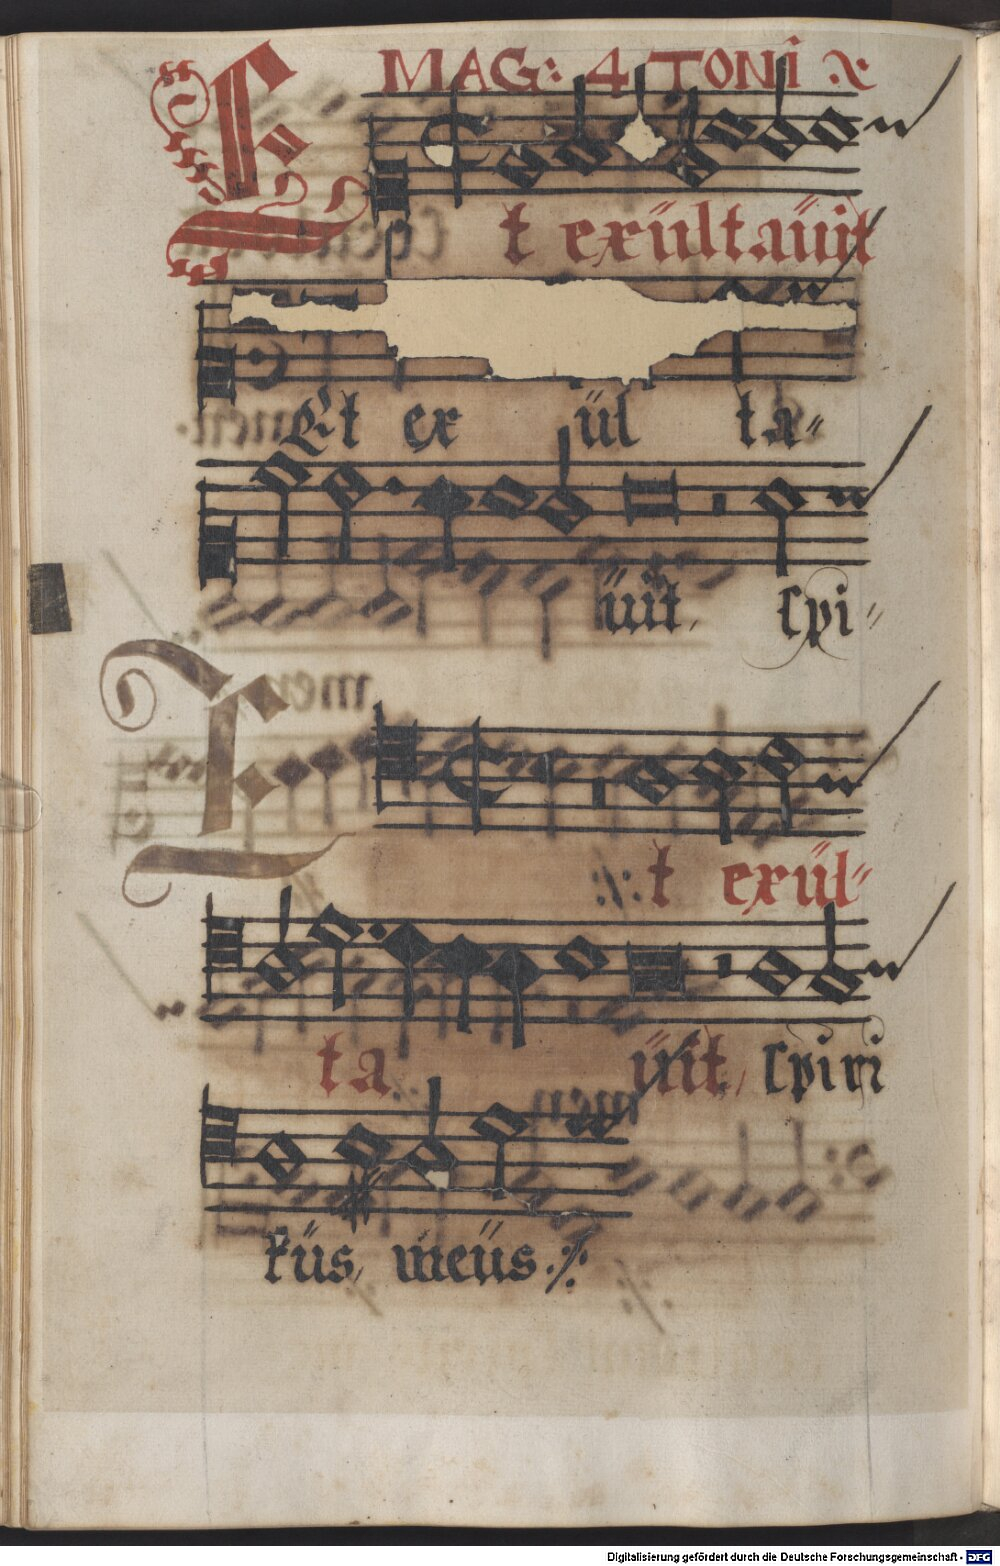 MAG: 4 TONI
Et exültaüit
Et ex ül ta-
üit, Spi-
Et exül-
ta üit, Spiri
tüs, meüs
Digitalisierung gefördert durch die Deutsche Forschungsgemeinschaft - DFG